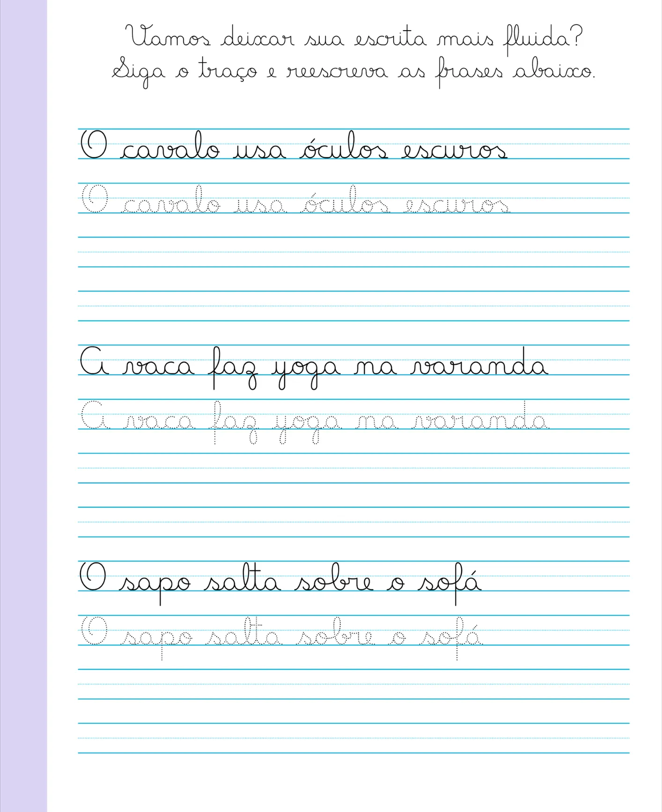 Vamos deixar sua escrita mais fluida?
Siga o traço e reescreva as frases abaixo.
O cavalo usa óculos escuros
O cavalo usa óculos escuros
A vaca faz yoga na varanda
A vaca faz yoga na varanda
O sapo salta sobre o sofá
O sapo salta sobre o sofá